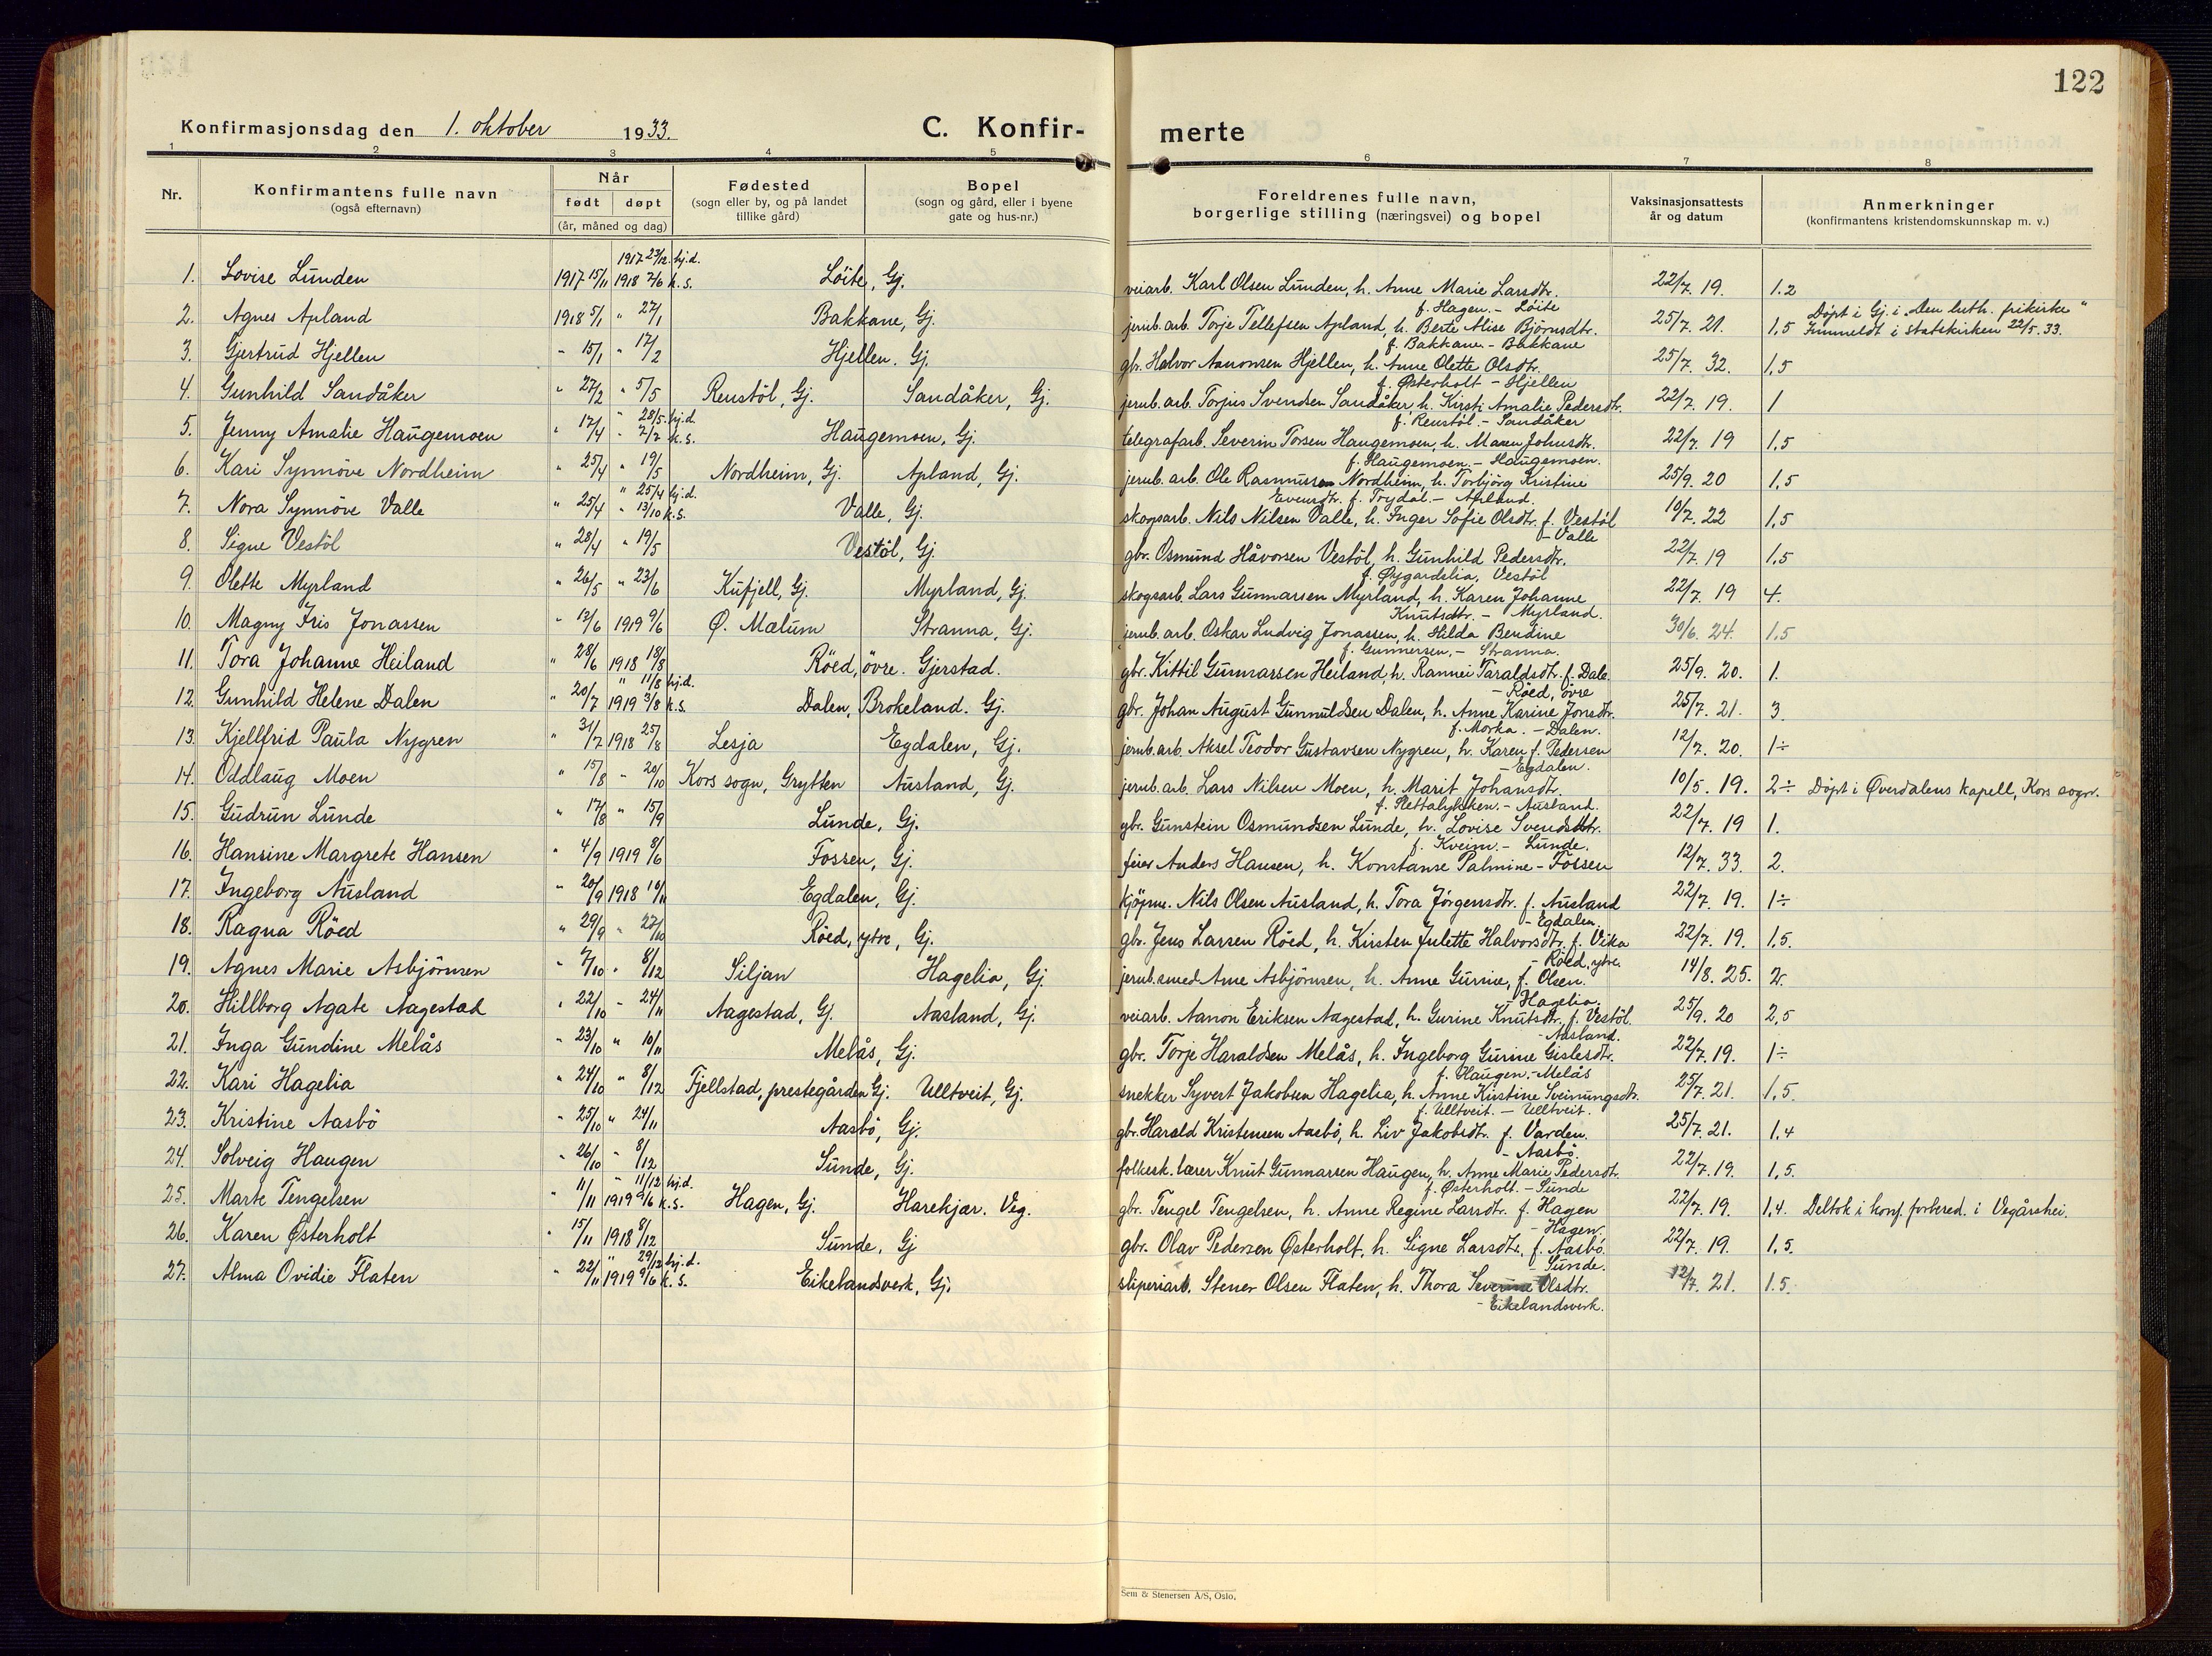 122
Konfirmasjonsdag den 1. oktober 1933.
C. Konfir- merte
1 2 3 4 5 6 7 8
Nr.
Konfirmantens fulle navn
(også efternavn)
Når
født døpt
(år, måned og dag)
Fødested
(sogn eller by, og på landet
tillike gård)
Bopel
(sogn og gård, eller i byene
gate og hus-nr.)
Foreldrenes fulle navn,
borgerlige stilling (næringsvei) og bopel
Vaksinasjonsattests
år og datum
Anmerkninger
(konfirmantens kristendomskunnskap m. v.)
1917 23/12. hj.d.
1. Lovise Lunden 1917 15/11 1918 2/6 k.s. Löite, Gj. veiarb. Karl Olsen Lunden, h. Anne Marie Larsdtr. 22/7. 19. 1.2
f. Hagen. - Löite
Döpt i Gj. i "Den luth. frikirke"
2. Agnes Apland 1918 5/1 " 27/1 Bakkane, Gj. jernb. arb. Torje Tellefsen Apland, h. Berte Alise Björnsdtr. 25/7. 21. 1,5 Innmeldt i statskirken 22/5. 33.
f. Bakkane - Bakkane
3. Gjertrud Hjellen " 15/1 " 17/2 Hjellen. Gj. gbr. Halvor Aanonsen Hjellen, h. Anne Olette Olsdtr. 25/7. 32. 1,5
f. Østerholt - Hjellen
4. Gunhild Sandåker " 27/2 " 5/5 Renstöl, Gj. Sandåker, Gj. jernb. arb. Torjus Svendsen Sandåker, h. Kirsti Amalie Pedersdtr. 22/7. 19. 1
f. Renstöl. - Sandåker
" 28/5. hj.d.
5. Jenny Amalie Haugemoen " 17/4 " 7/7 k.s. Haugemoen, Gj. telegrafarb. Severin Torsen Haugemoen, h. Maren Johnsdtr. 22/7. 19 1,5
f. Haugemoen. - Haugemoen.
6. Kari Synnöve Nordheim " 25/4 " 19/5 Nordheim, Gj. Apland, Gj. jernb. arb. Ole Rasmussen Nordheim, h. Torbjörg Kristine 25/9. 20 1,5
Evensdtr. f. Trydal. - Apland.
" 25/4 hj.d.
7. Nora Synnöve Valle " 25/4 " 13/10 k.s. Valle, Gj. skogsarb. Nils Nilsen Valle, h. Inger Sofie Olsdtr. f. Vestöl 10/7. 22 1,5
- Valle
8. Signe Vestöl " 28/4 " 19/5 Vestöl, Gj. gbr. Osmund Håvorsen Vestöl, h. Gunhild Pedersdtr. 22/7. 19 1.5
f. Øygardslia, Vestöl
9. Olette Myrland " 26/5 " 23/6 Kufjell, Gj. Myrland, Gj. skogsarb. Lars Gunnarsen Myrland, h. Karen Johanne 22/7. 19 4.
Knutsdtr. - Myrland.
10. Magny Iris Jonassen " 13/6 1919 9/6 Ø. Mælum Stranna, Gj. jernb. arb. Oskar Ludvig Jonassen, h. Hilda Bendine 30/6. 24. 1.5
f. Gunnersen, - Stranna.
11. Tora Johanne Heiland " 28/6 1918 18/8 Röed, övre. Gjerstad. gbr. Kittil Gunnarsen Heiland, h. Rannei Taraldsdtr. f. Dale. 25/9. 20. 1.
- Röed, övre
" 11/8 hj.d.
12. Gunhild Helene Dalen " 20/7 1919 3/8 k.s. Dalen, Brokeland. Gj. gbr. Johan August Gunnuldsen Dalen, h. Anne Karine Jonsdtr. 25/7. 21. 3.
f. Morka. - Dalen.
13. Kjellfrid Paula Nygren " 31/7 1918 25/8 Lesja Egdalen, Gj. jernb. arb. Aksel Teodor Gustavsen Nygren, h. Karen f. Pedersen 12/7. 20. 1÷
- Egdalen.
14. Oddlaug Moen " 15/8 " 20/10 Kors sogn, Grytten Ausland, Gj. jernb. arb. Lars Nilsen Moen, h. Marit Johansdtr. 10/5. 19. 2÷ Döpt i Øverdalens kapell, Kors sogn.
f. Slettalykken. - Ausland.
15. Gudrun Lunde " 17/8 " 15/9 Lunde, Gj. gbr. Gunstein Osmundsen Lunde, h. Lovise Svendsdtr. 22/7. 19 1.
f. Kveim. - Lunde.
16. Hansine Margrete Hansen " 4/9 1919 8/6 Fossen, Gj. feier Anders Hansen, h. Konstanse Palmine - Fossen 12/7. 33. 2.
17. Ingeborg Ausland " 20/9 1918 10/11 Egdalen, Gj. kjöpm. Nils Olsen Ausland, h. Tora Jörgensdtr. f. Ausland 22/7. 19. 1÷
- Egdalen.
18. Ragna Röed " 29/9 " 27/10 Röed, ytre, Gj. gbr. Jens Larsen Röed, h. Kirsten Julette Halvorsdtr. f. Vika 22/7. 19. 1,5.
- Röed, ytre.
19. Agnes Marie Asbjörnsen " 7/10 " 8/12 Siljan Hagelia, Gj. jernb. smed Arne Asbjörnsen, h. Anne Gurine, f. Olsen. 14/8. 25. 2.
- Hagelia.
20. Hillborg Agate Aagestad " 22/10 - 24/11 Aagestad, Gj. Aasland, Gj. veiarb. Aanon Eriksen Aagestad, h. Gurine Knutsdtr. f. Vestöl. 25/9. 20 2,5
- Aasland.
21. Inga Gundine Melås " 23/10 " 10/11 Melås, Gj. gbr. Torje Haraldsen Melås, h. Ingeborg Gurine Gislesdtr. 22/7. 19. 1÷
f. Haugen. - Melås
22. Kari Hagelia " 24/10 " 8/12 Fjellstad, prestegården Gj. Ulltveit, Gj. snekker Syvert Jakobsen Hagelia, h. Anne Kirstine Sveinungsdtr. 25/7. 21. 1,5.
f. Ulltveit. - Ulltveit.
23. Kristine Aasbö " 25/10 " 24/11 Aasbö, Gj. gbr. Harald Kristensen Aasbö, h. Liv Jakobsdtr. f. Varden. 25/7. 21. 1.4
- Aasbö.
24. Solveig Haugen " 26/10 " 8/12 Sunde, Gj. folkesk. lærer Knut Gunnarsen Haugen, h. Anne Marie Pedersdtr. 22/7. 19. 1,5.
f. Østerholt. - Sunde
" 11/12 hj.d.
25. Marte Tengelsen " 11/11 1919 9/6 k.s. Hagen, Gj. Harekjær. Veg. gbr. Tengel Tengelsen, h. Anne Regine Larsdtr. f. Hagen 22/7. 19. 1,4. Deltok i konf. forbered. i Vegårshei.
- Hagen.
26. Karen Østerholt " 15/11 1918 8/12 Sunde, Gj gbr. Olav Pedersen Østerholt, h. Signe Larsdtr, f. Aasbö. 22/7. 19. 1,5.
- Sunde.
" 29/12 hj.d.
27. Alma Ovidie Flaten " 22/11 1919 9/6 k.s. Eikelandsverk, Gj. sliperiarb. Stener Olsen Flaten, h. Thora Severine Olsdtr. 12/7. 21. 1.5.
- Eikelandsverk.
Sem & Stenersen A/S, Oslo.